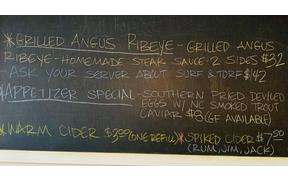 *GRILLED ANGUS RIBEYE - GRILLED ANGUS
RIBEYE - HOMEMADE STEAK SAUCE · 2 SIDES $32
- ASK YOUR SERVER ABOUT SURF & TURF $42
*APPETIZER SPECIAL - SOUTHERN FRIED DEVILED
EGGS W/ NC SMOKED TROUT
CAVIAR $8 (GF AVAILABLE)
*WARM CIDER $3.00 (ONE REFILL) * SPIKED CIDER $7.50
(RUM, JIM, JACK)